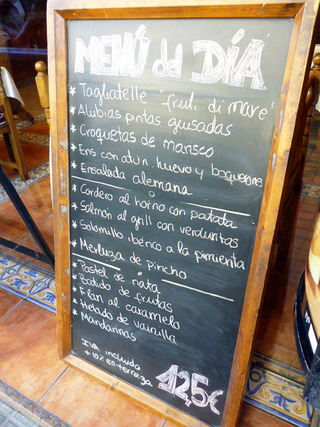 MENÚ del DÍA
* Tagliatelle "fruti di mare"
* Alubias pintas guisadas
* Croquetas de marisco
* Ens con atún, huevo y boquerone
* Ensalada alemana
* Cordero al horno con patata
* Salmón al grill con verduritas
* Solomillo ibérico a la pimienta
* Merluza de pincho
* Pastel de nata
* Batido de frutas
* Flan al caramelo
* Helado de vainilla
* Mandarinas
IVA incluido
+ 10% en terraza
12,5€